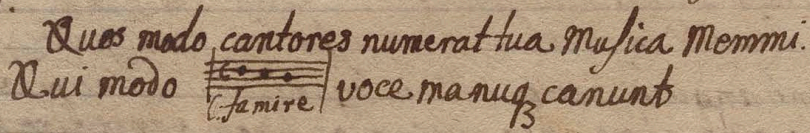 Quos modo cantores numerat tua Musica Memmi.
Qui modo famire voce manuqꝫ canunt